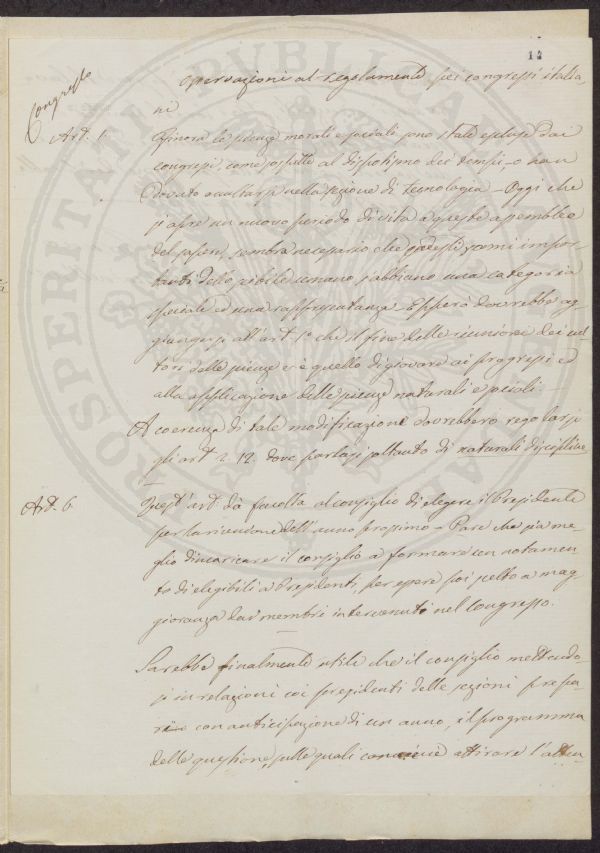 14
Congresso
Osservazioni al regolamento dei congressi italia-
ni
Art. 1.
Finora le scienze morali e sociali sono state escluse dai
congressi, come sospette al dispotismo dei tempi, o han
dovuto occultarsi nella sezione di tecnologia – Oggi che
si apre un nuovo periodo di vita a queste assemblee
del sapere, sembra necessario che questi rami impor-
tanti dello scibile umano s'abbiano una categoria
speciale ed una rappresentanza – Epperò dovrebbe ag-
giungersi all'art. 1º che il fine delle riunioni dei cul-
tori delle scienze è quello di giovare ai progressi ed
alla applicazione delle scienze naturali e sociali –
A coerenza di tale modificazione dovrebbero regolarsi
gli art. 2. 12. dove parlasi soltanto di naturali discipline
Art. 6
Quest'art. dà facoltà al consiglio di elegere il Presidente
per la riunione dell'anno prossimo – Pare che sia me-
glio d'incaricare il consiglio a formare un notamen-
to di elegibili a Presidenti, per essere poi scelto a mag-
gioranza dai membri intervenuti nel Congresso.
Sarebbe finalmente utile che il consiglio mettendo-
si in relazioni coi presidenti delle sezioni prepa-
con anticipazione di un anno, il programma
delle questioni, sulle quali conviene attirare l'atten-
PROSPERITATI PUBLICAE